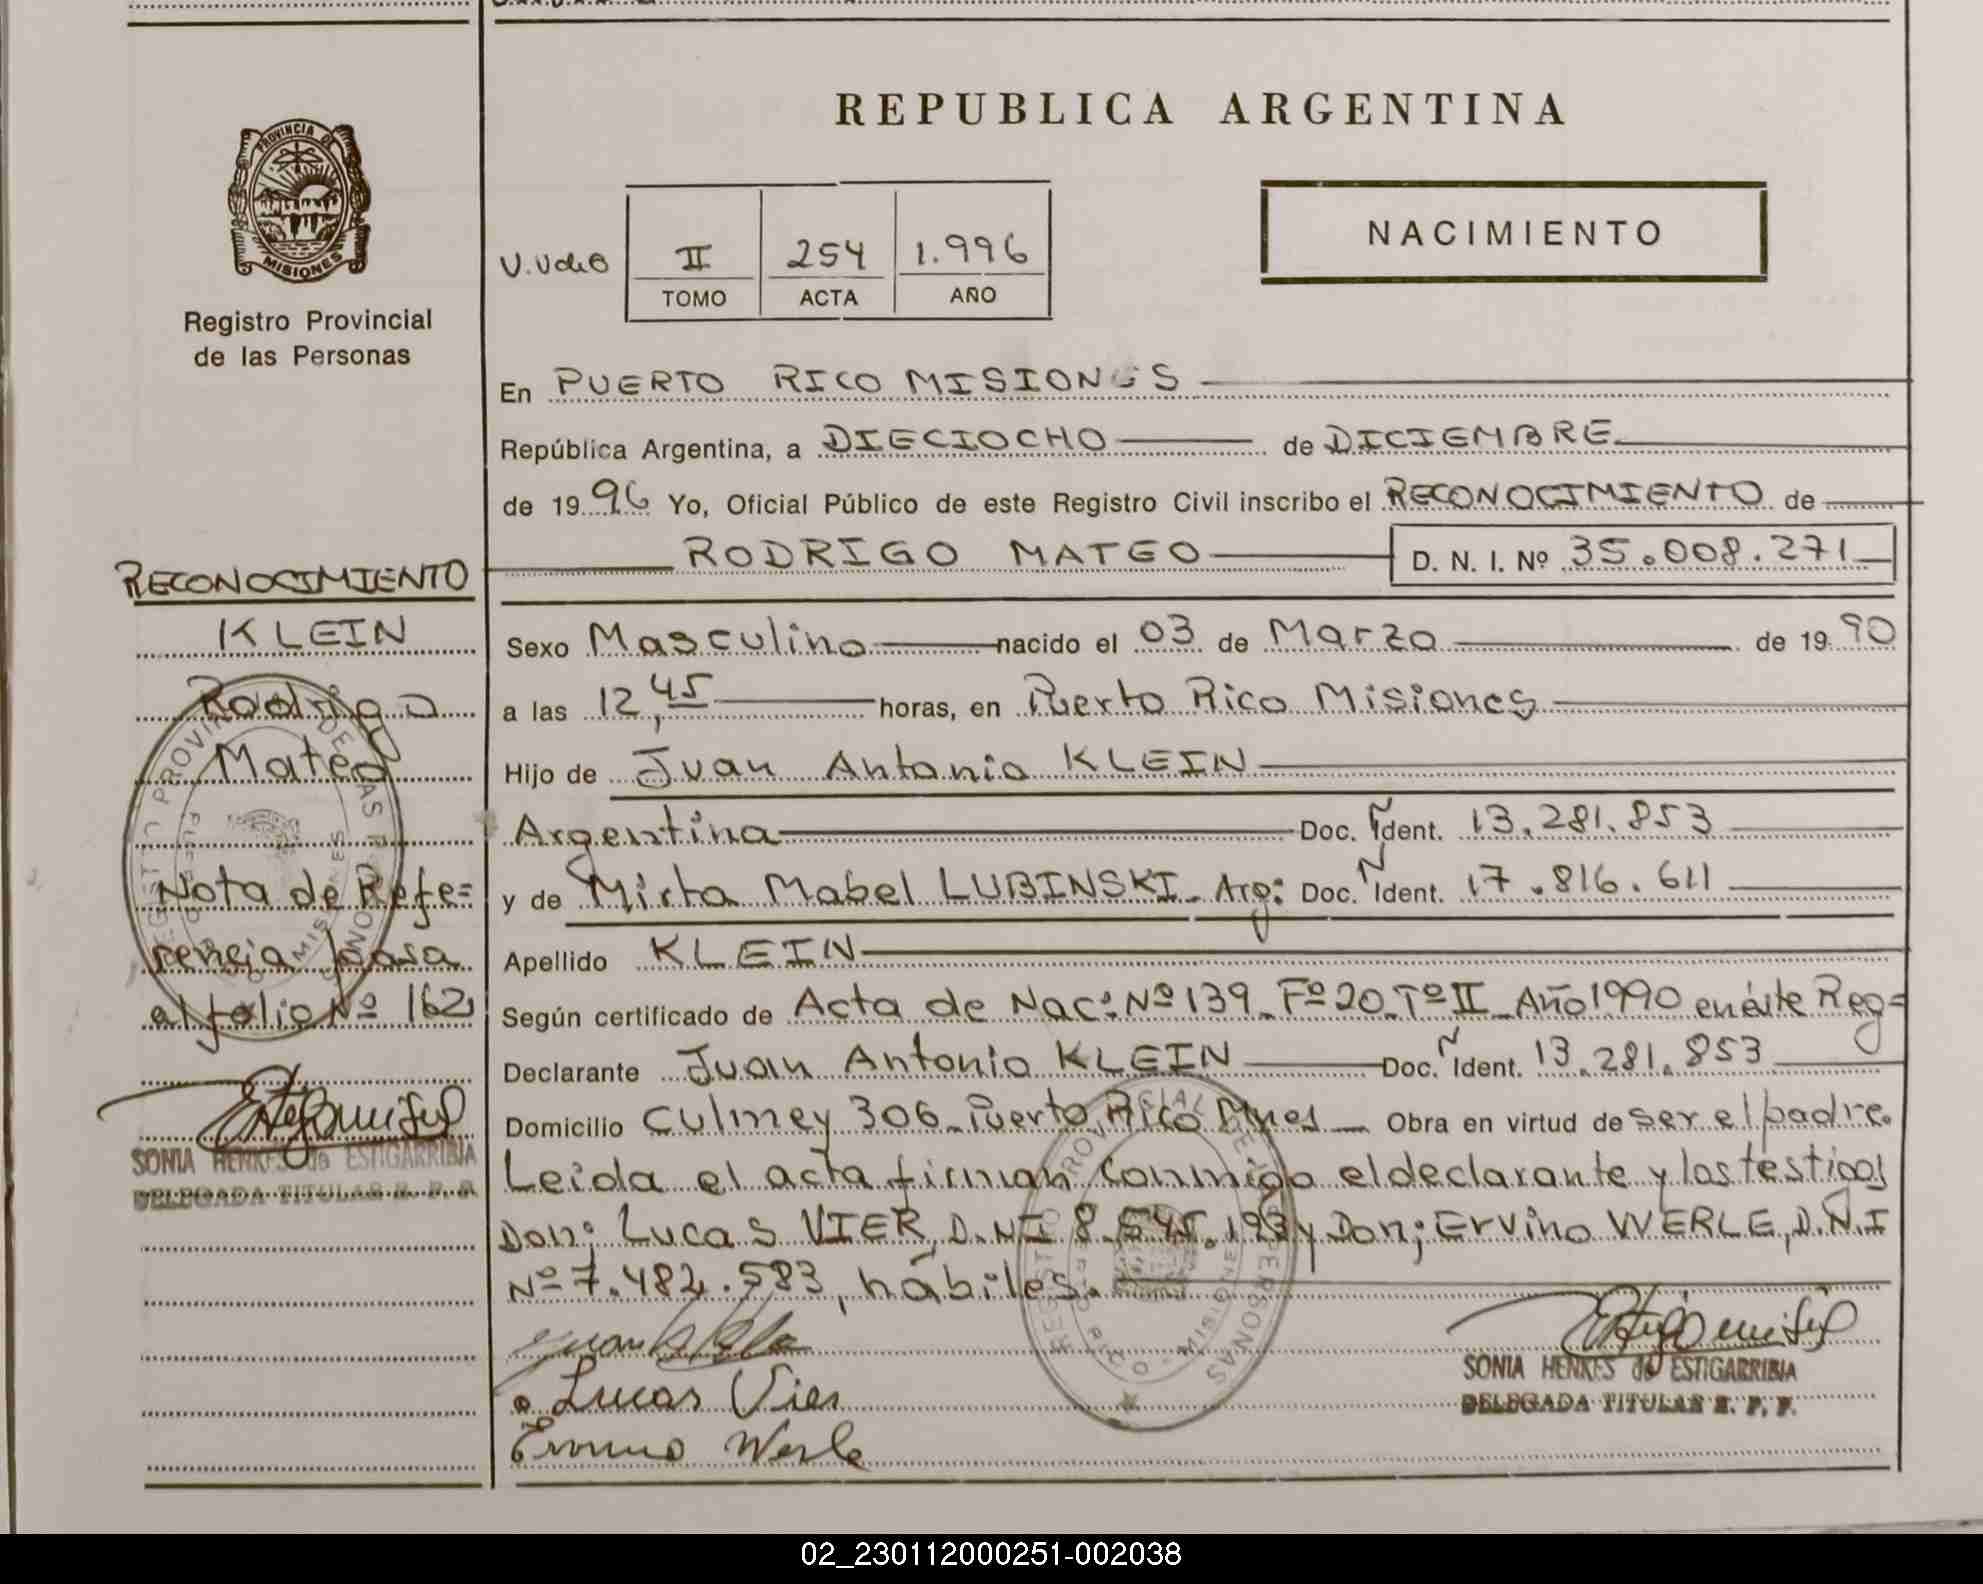 REPUBLICA ARGENTINA
PROVINCIA DE
MISIONES
Registro Provincial
de las Personas
NACIMIENTO
II 254 1.996
TOMO ACTA AÑO
En PUERTO RICO MISIONES
República Argentina, a DIECIOCHO de DICIEMBRE
de 19 96 Yo, Oficial Público de este Registro Civil inscribo el RECONOCIMIENTO de
RODRIGO MATEO D. N. I. Nº 35.008.271
Sexo Masculino nacido el 03 de Marzo de 19 90
a las 12,45 horas, en Puerto Rico Misiones
Hijo de Juan Antonio KLEIN
Argentina Doc. Ident. 13.281.853
y de Mirta Mabel LUBINSKI - Arg: Doc. Ident. 17.816.611
Apellido KLEIN
Según certificado de Acta de Nac: Nº 139 - Fº 20 - Tº II - Año 1990 en éste Reg=
Declarante Juan Antonio KLEIN Doc. Ident. 13.281.853
Domicilio Culmey 306 - Puerto Rico Mnes - Obra en virtud de ser el padre.
Leida el acta firman conmigo el declarante y los testigos
Don; Lucas VIER, D.NI 8.545.193 y Don; Ervino WERLE, D.N.I
Nº 7.482.583, hábiles.
Lucas Vier
Ervino Werle
SONIA HENKES de ESTIGARRIBIA
DELEGADA TITULAR R. P. P.
RECONOCIMIENTO
KLEIN
Rodrigo
Mateo
Nota de Refe=
rencia pasa
al folio Nº 162
SONIA HENKES de ESTIGARRIBIA
DELEGADA TITULAR R. P. P.
02_230112000251-002038